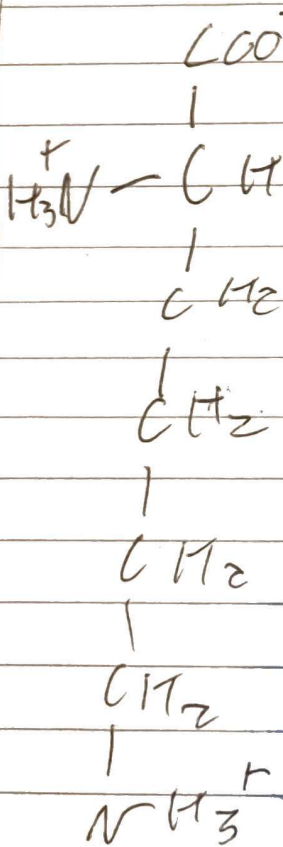 COO-
H3N+ - CH
CH2
CH2
CH2
CH2
NH3+